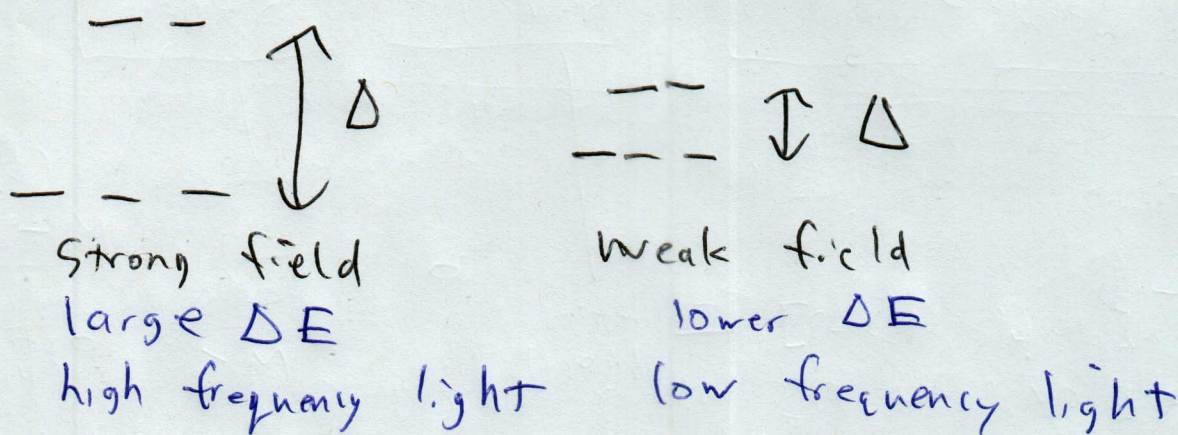 Δ
Δ
Strong field
large ΔE
high frequency light
weak field
lower ΔE
low frequency light